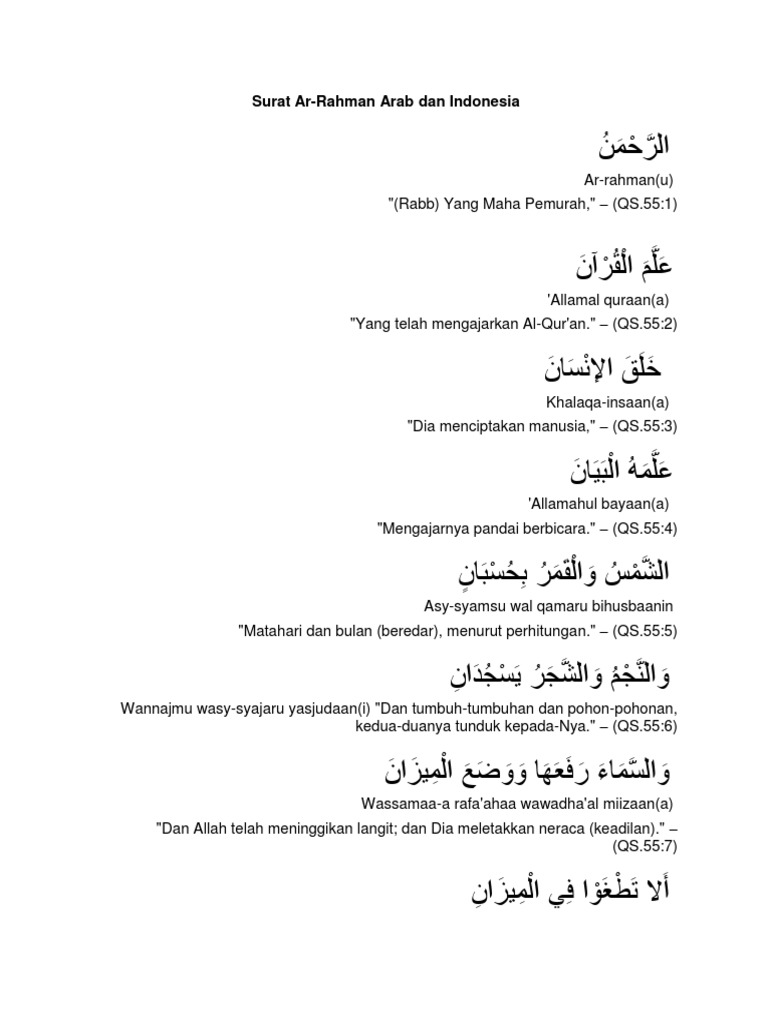 Surat Ar-Rahman Arab dan Indonesia
الرَّحْمَنُ
Ar-rahman(u)
"(Rabb) Yang Maha Pemurah," – (QS.55:1)
عَلَّمَ الْقُرْآنَ
'Allamal quraan(a)
"Yang telah mengajarkan Al-Qur'an." – (QS.55:2)
خَلَقَ الإنْسَانَ
Khalaqa-insaan(a)
"Dia menciptakan manusia," – (QS.55:3)
عَلَّمَهُ الْبَيَانَ
'Allamahul bayaan(a)
"Mengajarnya pandai berbicara." – (QS.55:4)
الشَّمْسُ وَالْقَمَرُ بِحُسْبَانٍ
Asy-syamsu wal qamaru bihusbaanin
"Matahari dan bulan (beredar), menurut perhitungan." – (QS.55:5)
وَالنَّجْمُ وَالشَّجَرُ يَسْجُدَانِ
Wannajmu wasy-syajaru yasjudaan(i) "Dan tumbuh-tumbuhan dan pohon-pohonan,
kedua-duanya tunduk kepada-Nya." – (QS.55:6)
وَالسَّمَاءَ رَفَعَهَا وَوَضَعَ الْمِيزَانَ
Wassamaa-a rafa'ahaa wawadha'al miizaan(a)
"Dan Allah telah meninggikan langit; dan Dia meletakkan neraca (keadilan)." –
(QS.55:7)
أَلا تَطْغَوْا فِي الْمِيزَانِ